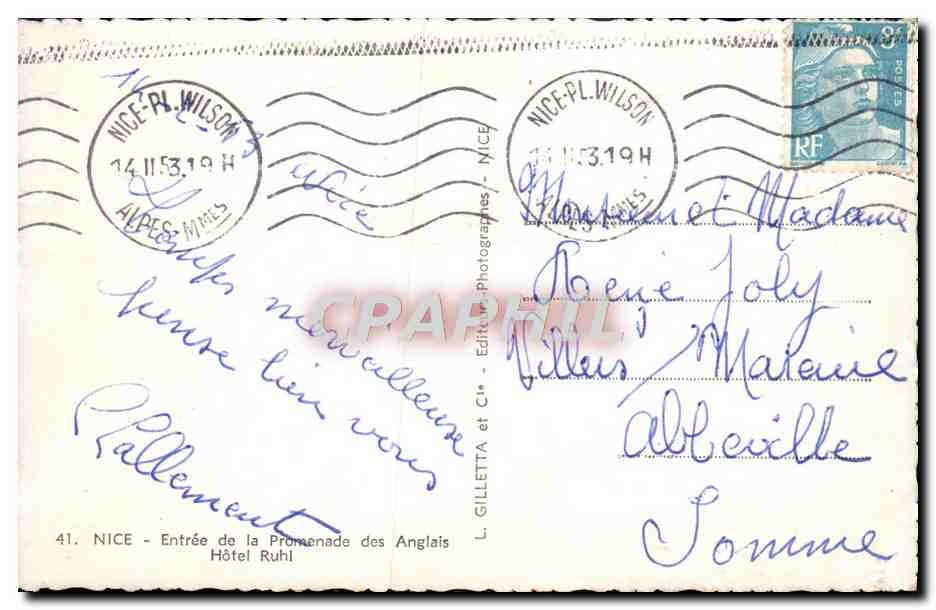 14-2-53 Nice
Temps merveilleuse
pense bien vous
Lallement
41. NICE - Entrée de la Promenade des Anglais
Hôtel Ruhl
NICE-PL. WILSON
14 II 53.19 H
ALPES-MMES
L. GILLETTA et Cie - Editeurs-Photographes - NICE
NICE-PL. WILSON
14 II 53.19 H
ALPES-MMES
8F
POSTES
RF
Monsieur et Madame
René Joly
Villers s/ Mareuil
Abbeville
Somme
CPAPHIL